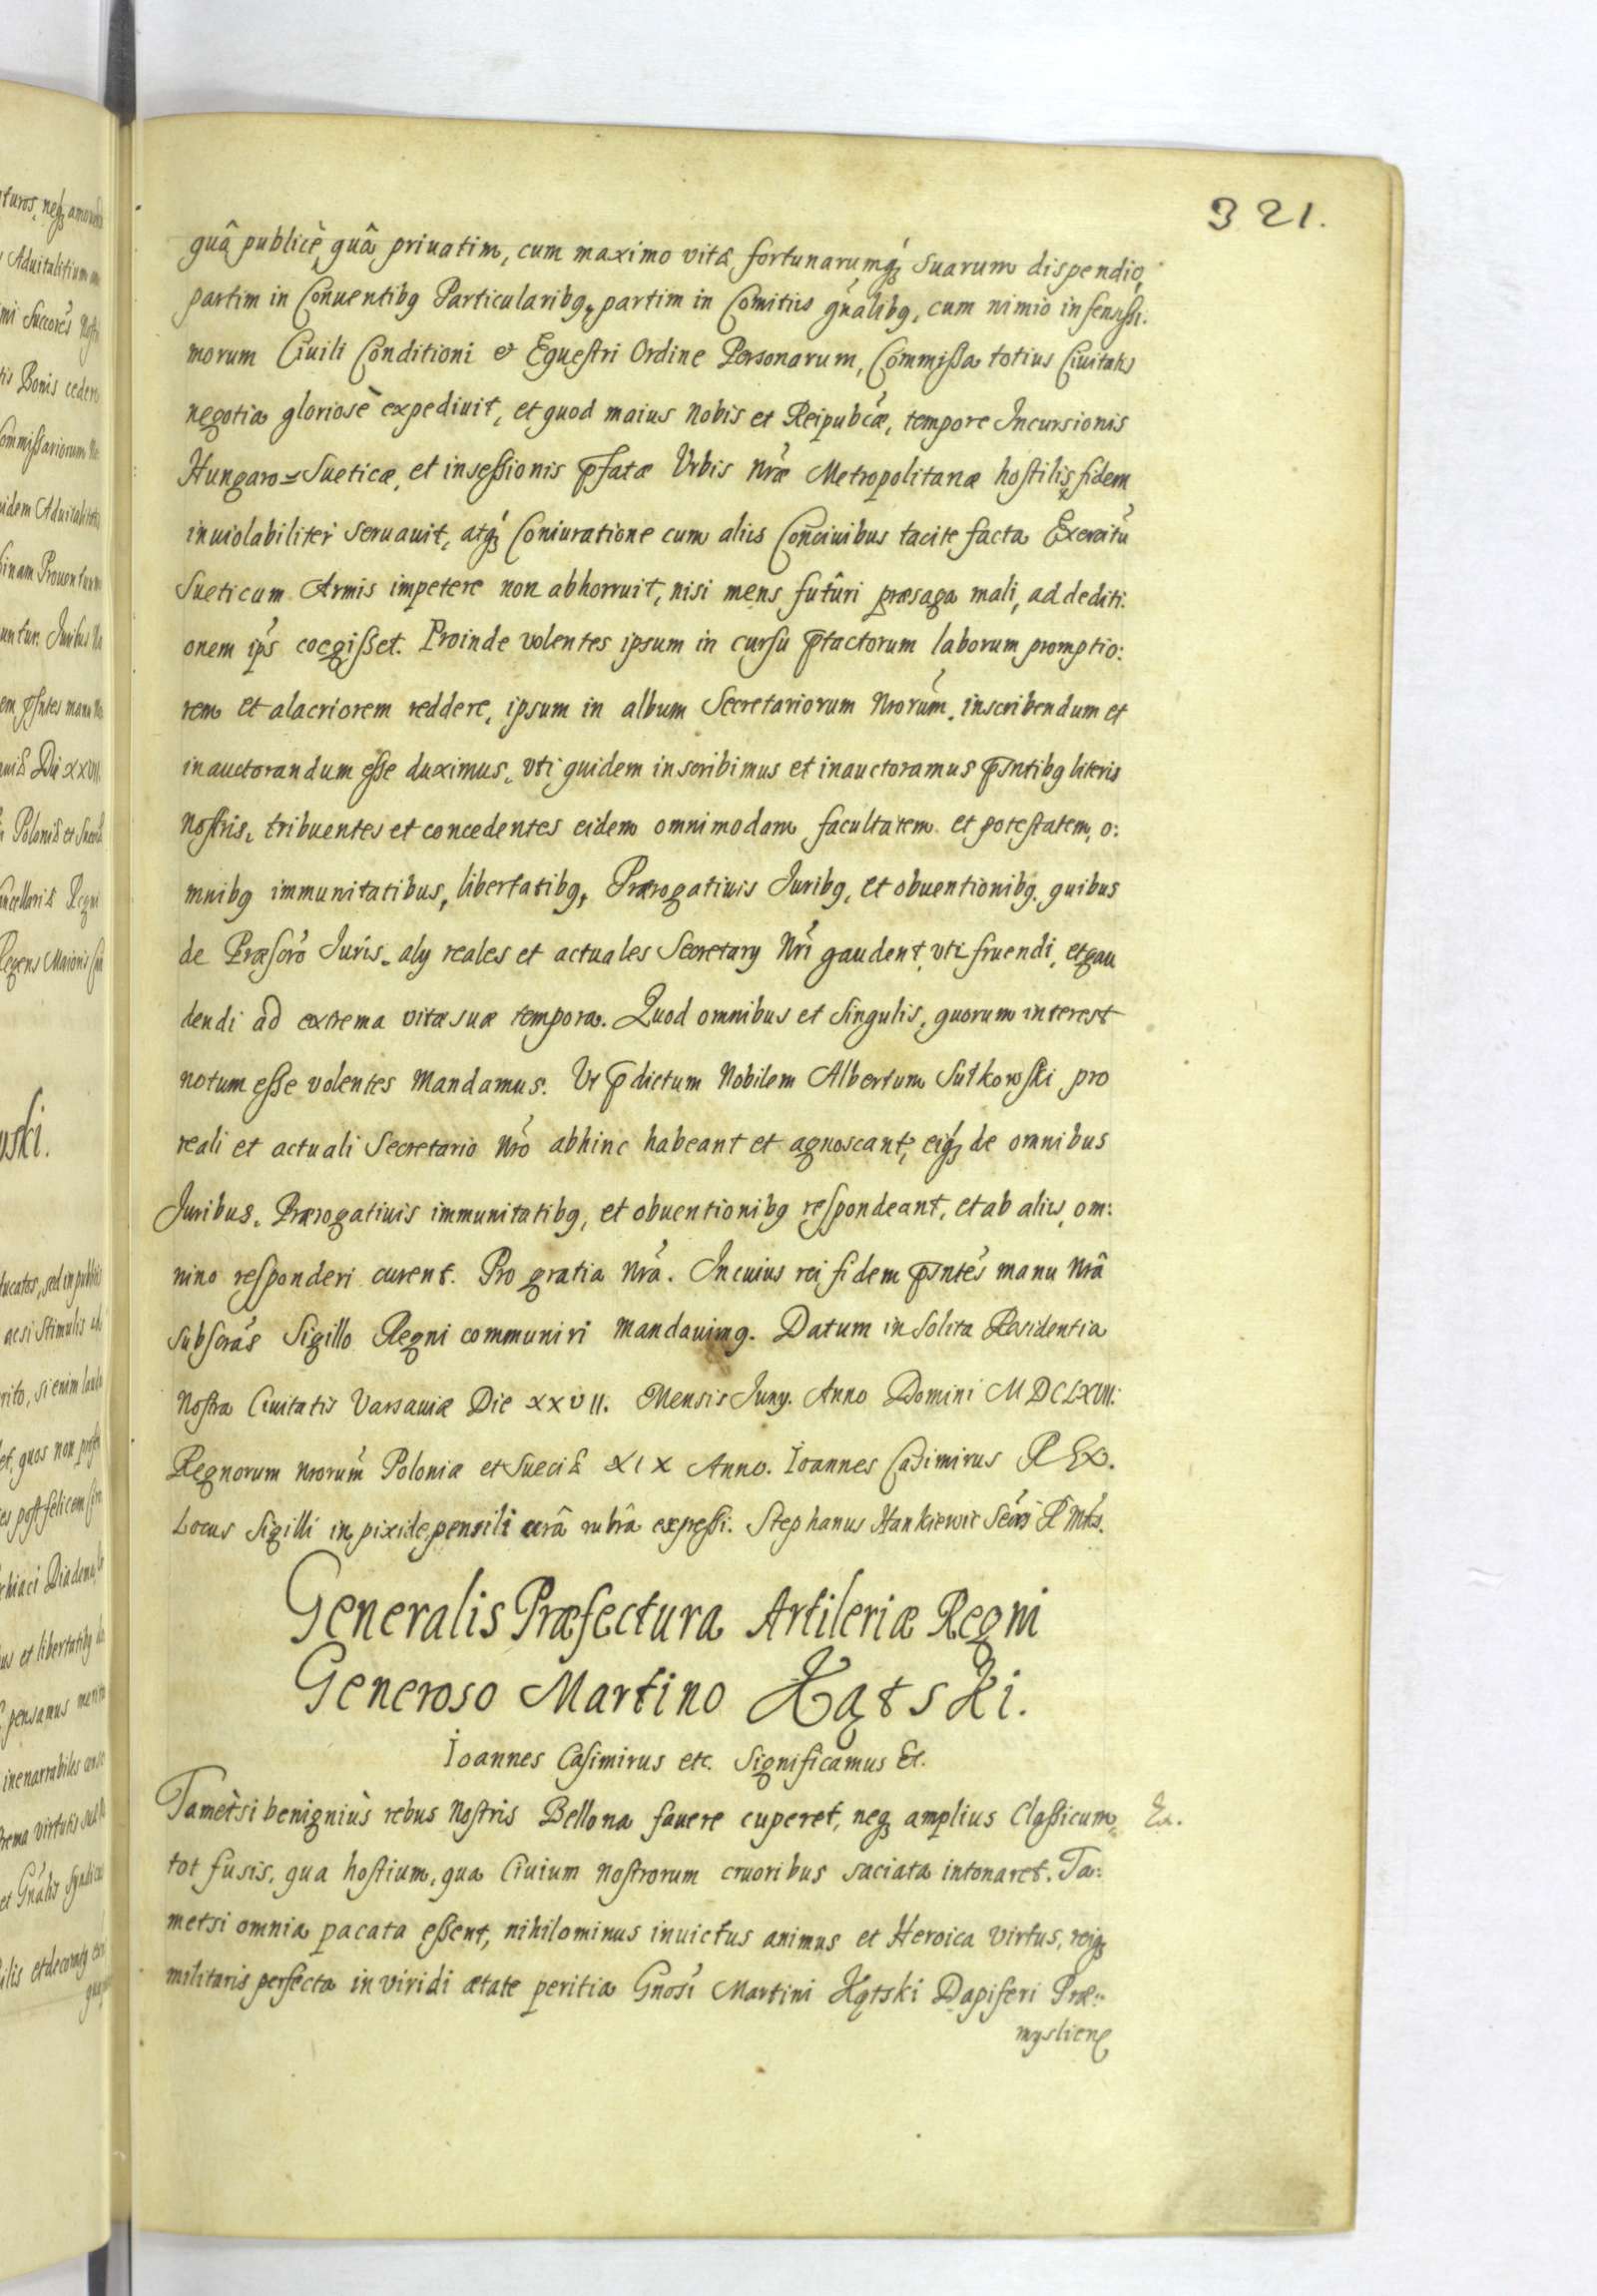 321.
quâ publicè, quâ priuatim, cum maximo vitæ fortunarumq́ȝ suarum dispendio,
partim in Conuentibꝰ Particularibꝰ, partim in Comitiis gńalibꝰ, cum nimio infensissi:
morum Ciuili Conditioni et Equestri Ordine Personarum, Commissa totius Ciuitatis
negotia gloriosè expediuit, et quod maius Nobis et Reipubcæ, tempore Incursionis
Hungaro=Sueticæ, et insessionis p̄fatæ Vrbis Nræ Metropolitanæ hostilis, fidem
inuiolabiliter seruauit, atq́ȝ Coniuratione cum aliis Conciuibus tacite facta Exercitũ
Sueticum Armis impetere non abhorruit, nisi mens futûri præsaga mali, ad dediti:
onem ips coegisset. Proinde volentes ipsum in cursu p̄tactorum laborum promptio:
rem et alacriorem reddere, ipsum in album Secretariorum Nrorum, inscribendum et
inauctorandum esse duximus, vti quidem inscribimus et inauctoramus p̄sntibꝰ literis
Nostris, tribuentes et concedentes eidem omnimodam facultatem et potestatem, o:
mnibꝰ immunitatibus, libertatibꝰ, Prærogatiuis Juribꝰ, et obuentionibꝰ, quibus
de Præscro Juris, aly reales et actuales Secretary Nri gaudent, vti fruendi, et gau
dendi ad extrema vitæ suæ tempora. Quod omnibus et Singulis, quorum interest
notum esse volentes Mandamus. Vt p̄dictum Nobilem Albertum Sutkowski pro
reali et actuali Secretario Nro abhinc habeant et agnoscant, eiq́ȝ de omnibus
Juribus, Prærogatiuis immunitatibꝰ, et obuentionibꝰ respondeant, et ab aliis, om:
nino responderi curent. Pro gratia Nra. In cuius rei fidem p̄sntes manu Nrâ
subscras Sigillo Regni communiri mandauimꝰ. Datum in Solita Residentia
Nostra Ciuitatis Varsauiæ Die XXVII. Mensis Juny. Anno Domini MDCLXVII.
Regnorum Nrorum Poloniæ et Sueciæ XIX Anno. Ioannes Casimirus REX.
Locus Sigilli in pixide pensili cerâ rubrâ expressi. Stephanus Hankiewic Secrs R Mtis.
Generalis Præfectura Artileriæ Regni
Generoso Martino Kątski.
Ioannes Casimirus etc. Significamus Et.
Tametsi benigniùs rebus Nostris Bellona fauere cuperet, neqȝ amplius Classicum,
tot fusis, qua hostium, qua Ciuium nostrorum cruoribus saciata intonaret. Ta:
metsi omnia pacata essent, nihilominus inuictus animus et Heroica virtus, reiqȝ
militaris perfecta in viridi ætate peritia Gnosi Martini Kątski Dapiferi Præ:
mysliens